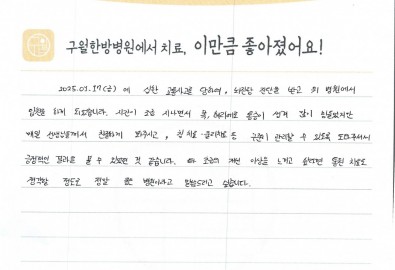 구월한방병원에서 치료, 이만큼 좋아졌어요!
2025.01.17(금) 에 심한 교통사고를 당하여, 뇌진탕 진단을 받고 이 병원에서
입원을 하게 되었습니다. 시간이 조금 지나면서 목, 허리에도 통증이 생겨 많이 힘들었지만
매일 선생님들께서 친절하게 봐주시고, 침 치료·물리치료 등 꾸준히 관리할 수 있도록 도와주셔서
긍정적인 결과를 볼 수 있었던 것 같습니다. 조금의 개선 이상을 느끼고
생각할 정도로 정말 좋은 병원이라고 말씀드리고 싶습니다.